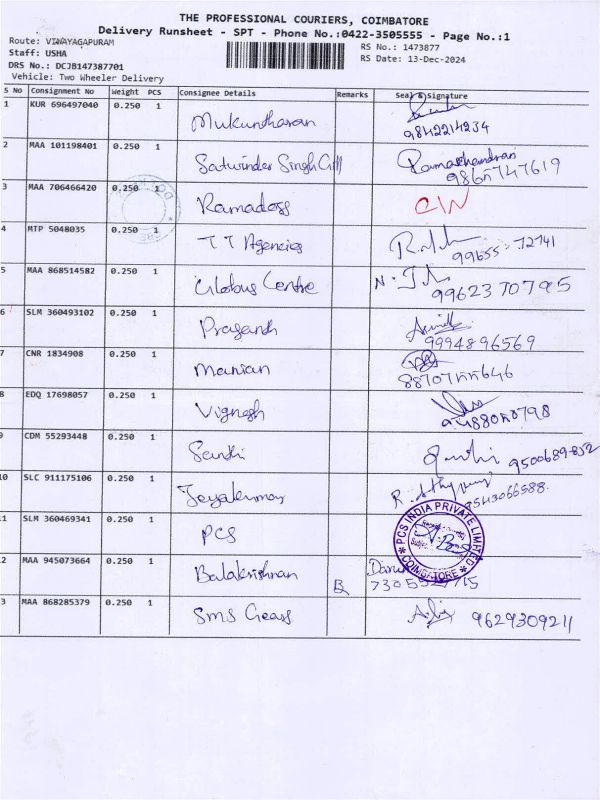 THE PROFESSIONAL COURIERS, COIMBATORE
Delivery Runsheet - SPT - Phone No.:0422-3505555 - Page No.:1
Route: VINAYAGAPURAM
RS No.: 1473877
Staff: USHA
RS Date: 13-Dec-2024
DRS No.: DCJB147387701
Vehicle: Two Wheeler Delivery
S No Consignment No Weight PCS Consignee Details Remarks Seal & Signature
1 KUR 696497040 0.250 1 Mukundharan 9842214234
2 MAA 101198401 0.250 1 Satwinder Singh Gill Ramachandran
3 MAA 706466420 0.250 1 Ramadoss
4 MTP 5048035 0.250 1 TT Agencies 99655-72741
5 MAA 868514582 0.250 1 Globus Centre 9962370795
6 SLM 360493102 0.250 1 Prasanth 9994896569
7 CNR 1834908 0.250 1 Manian
8 EDQ 17698057 0.250 1 Vignesh
9 CDM 55293448 0.250 1 Santhi 9500689832
10 SLC 911175106 0.250 1 Jeyakumar
11 SLM 360469341 0.250 1 PCS PCS INDIA PRIVATE LIMITED COIMBATORE
12 MAA 945073664 0.250 1 Balakrishnan
13 MAA 868285379 0.250 1 SMS Gears 9629309211